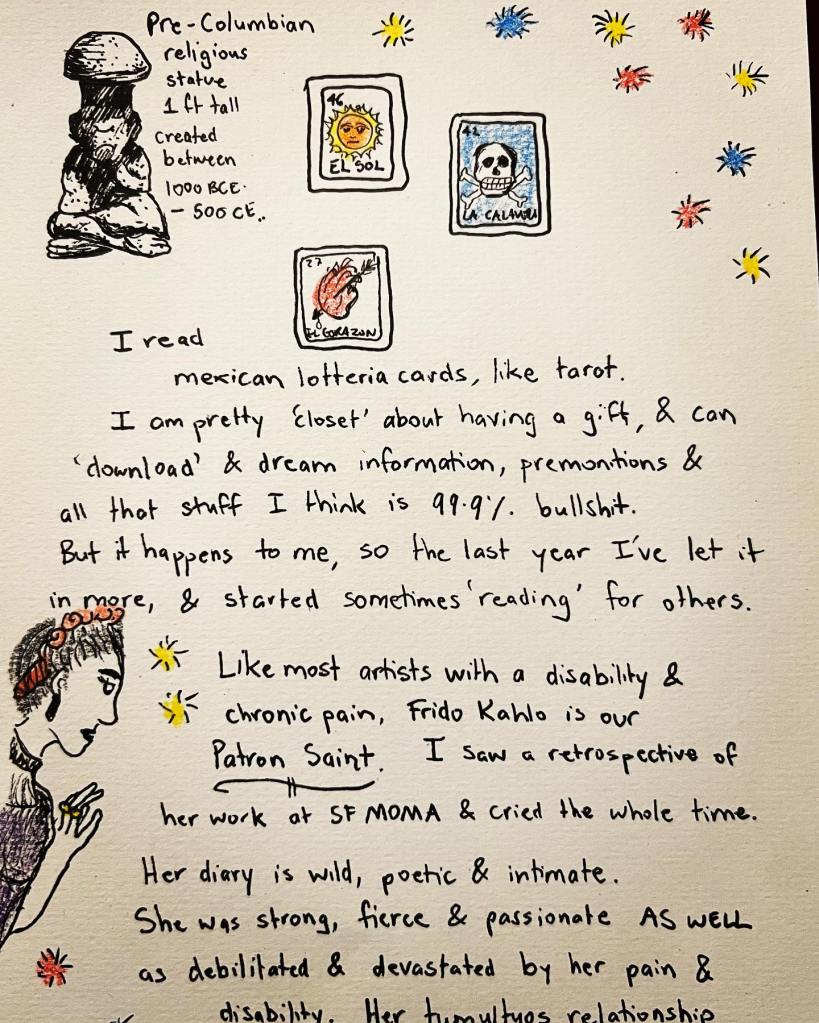 Pre-Columbian
religious
statue
1 ft tall
created
between
1000 BCE.
- 500 CE..
46
EL SOL
42
LA CALAVERA
27
EL CORAZON
I read
mexican lotteria cards, like tarot.
I am pretty 'closet' about having a gift, & can
'download' & dream information, premonitions &
all that stuff I think is 99.9% bullshit.
But it happens to me, so the last year I've let it
in more, & started sometimes 'reading' for others.
Like most artists with a disability &
chronic pain, Frida Kahlo is our
Patron Saint. I saw a retrospective of
her work at SF MOMA & cried the whole time.
Her diary is wild, poetic & intimate.
She was strong, fierce & passionate AS WELL
as debilitated & devastated by her pain &
disability. Her tumultuos relationship